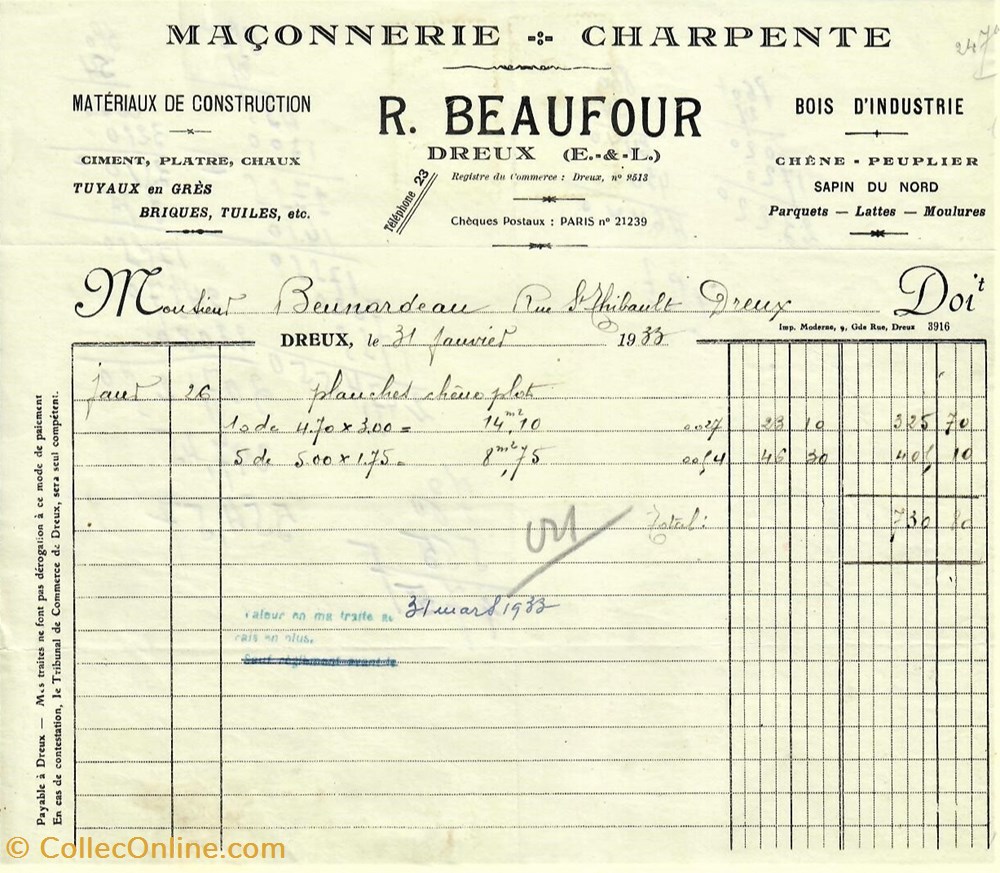 MAÇONNERIE -:- CHARPENTE
247
MATÉRIAUX DE CONSTRUCTION
CIMENT, PLATRE, CHAUX
TUYAUX en GRÈS
BRIQUES, TUILES, etc.
R. BEAUFOUR
DREUX (E.-&-L.)
Registre du Commerce : Dreux, nº 9513
Téléphone 23
Chèques Postaux : PARIS nº 21239
BOIS D'INDUSTRIE
CHÊNE - PEUPLIER
SAPIN DU NORD
Parquets — Lattes — Moulures
Monsieur Bennardeau Rue St Thibault Dreux Doit
Imp. Moderne, 9, Gde Rue, Dreux 3916
DREUX, le 31 Janvier 1933
Janv 26 planches chêne plot
10 de 4.70 x 3.00 = 14 m2,10 0.027 23 10 325 70
5 de 5.00 x 1.75 = 8 m2,75 0.054 46 30 405 10
Total: 730 80
Valeur en ma traite au 31 mars 1933
rais en plus.
Sauf règlement avant le
Payable à Dreux — Mes traites ne font pas dérogation à ce mode de paiement
En cas de contestation, le Tribunal de Commerce de Dreux, sera seul compétent.
© CollecOnline.com